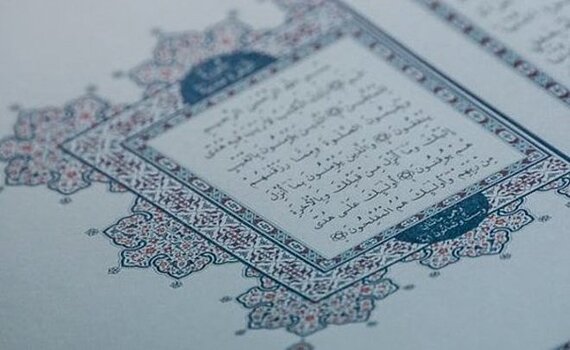 بِسْمِ ٱللَّهِ ٱلرَّحْمَٰنِ ٱلرَّحِيمِ
الٓمٓ ۝١ ذَٰلِكَ ٱلْكِتَٰبُ لَا رَيْبَ ۛ فِيهِ ۛ هُدًى
لِّلْمُتَّقِينَ ۝٢ ٱلَّذِينَ يُؤْمِنُونَ بِٱلْغَيْبِ
وَيُقِيمُونَ ٱلصَّلَوٰةَ وَمِمَّا رَزَقْنَٰهُمْ
يُنفِقُونَ ۝٣ وَٱلَّذِينَ يُؤْمِنُونَ بِمَآ أُنزِلَ
إِلَيْكَ وَمَآ أُنزِلَ مِن قَبْلِكَ وَبِٱلْءَاخِرَةِ
هُمْ يُوقِنُونَ ۝٤ أُو۟لَٰٓئِكَ عَلَىٰ هُدًى
مِّن رَّبِّهِمْ وَأُو۟لَٰٓئِكَ هُمُ ٱلْمُفْلِحُونَ ۝٥